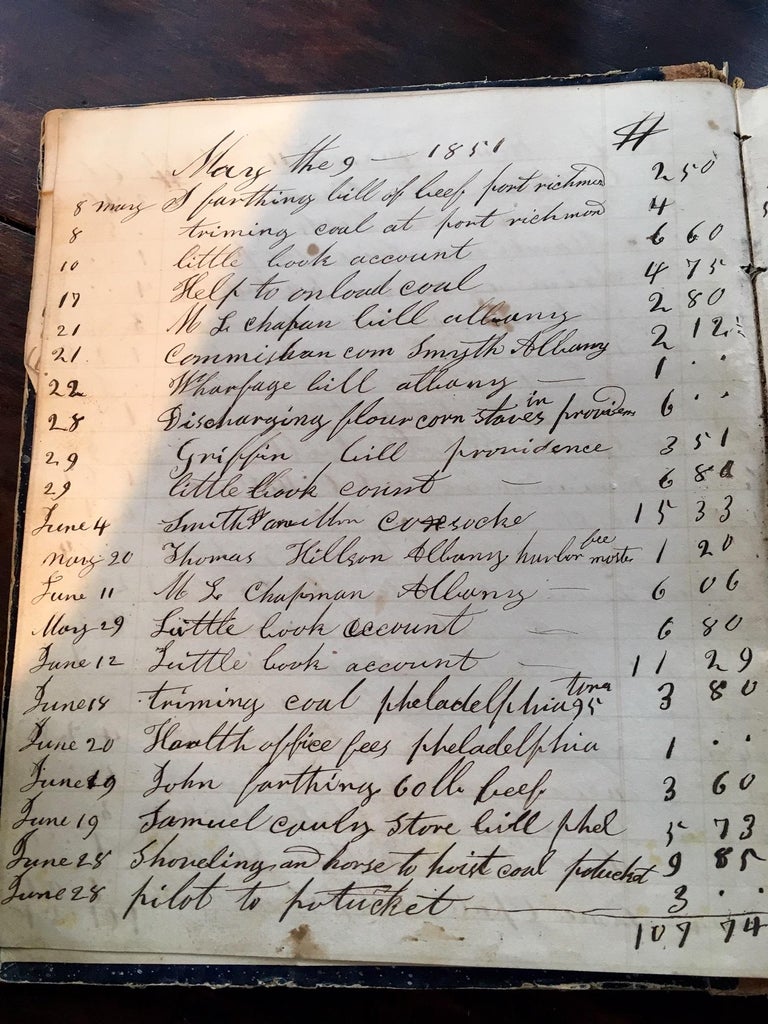 May the 9 - 1851 #
8 may J farthing bill of beef port richmond 2 50
8 triming coal at port richmond 4
10 little book account 6 60
17 Help to onload coal 4 75
21 M L chapan bill albany 2 80
21 Commishan com Smyth Albany 2 12 1/2
22 Wharfage bill albany — 1 . .
28 Discharging flour corn staves in providens 6 . .
29 Griffin bill providence 3 51
29 little book count — 6 80
June 4 Smith 15 33
May 20 Thomas Hillson Albany harbor master fee 1 20
June 11 M L Chapman Albany — 6 06
May 29 Little book account — 6 80
June 12 Little book account — 11 29
June 18 triming coal pheladelphia 95 tons 3 80
June 20 Health office fees pheladelphia 1 . .
June 19 John farthing 60 lb beef 3 60
June 19 Samuel store bill phel 5 73
June 25 Shoveling and horse to hoist coal potucket 9 85
June 28 pilot to potucket — 3 . .
107 74